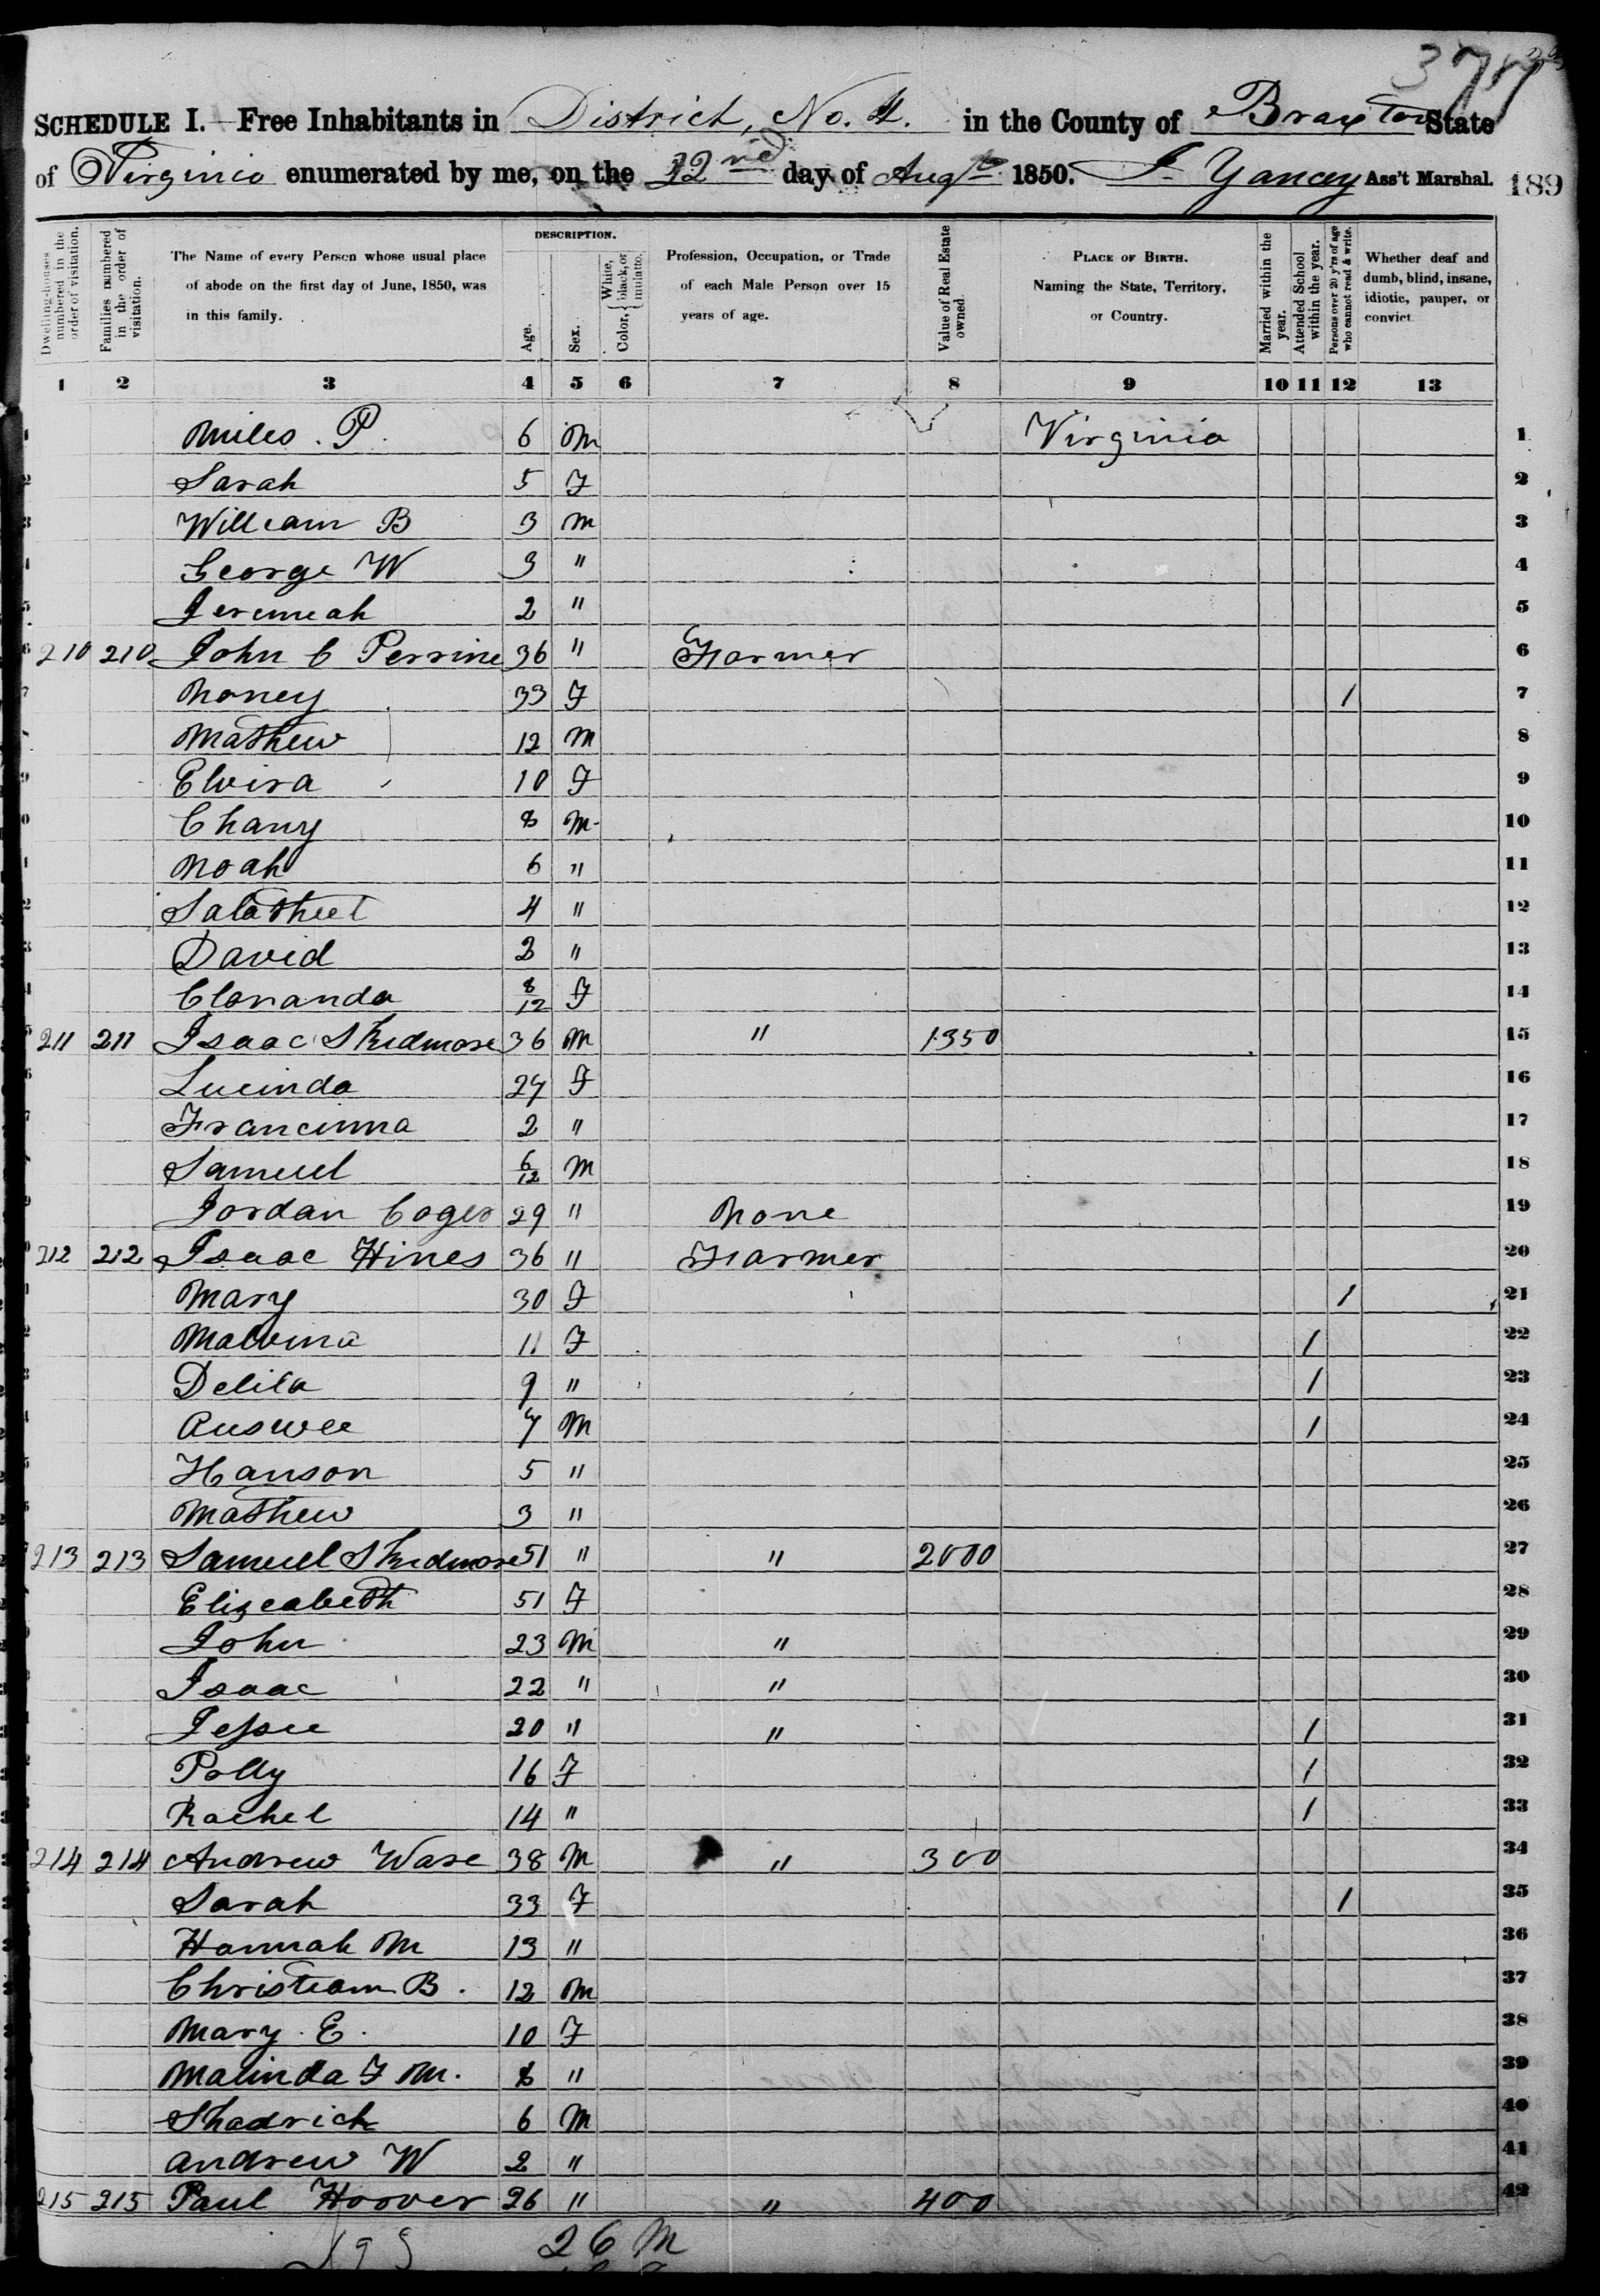 189
SCHEDULE I.—Free Inhabitants in District, No. 4. in the County of Braxton State
of Virginia enumerated by me, on the 22nd day of Augt 1850. J Yancey Ass't Marshal.
Dwelling-houses numbered in the order of visitation.
Families numbered in the order of visitation.
The Name of every Person whose usual place of abode on the first day of June, 1850, was in this family.
DESCRIPTION.
Age.
Sex.
Color, { White, black, or mulatto.
Profession, Occupation, or Trade of each Male Person over 15 years of age.
Value of Real Estate owned.
PLACE OF BIRTH. Naming the State, Territory, or Country.
Married within the year.
Attended School within the year.
Persons over 20 y'rs of age who cannot read & write.
Whether deaf and dumb, blind, insane, idiotic, pauper, or convict.
1 2 3 4 5 6 7 8 9 10 11 12 13
Miles. P. 6 M Virginia 1
Sarah 5 F 2
William B 3 M 3
George W 3 " 4
Jeremiah 2 " 5
210 210 John C Perrine 36 " Farmer 6
Nancy 33 F 1 7
Mathew 12 M 8
Elvira 10 F 9
Chany 8 M 10
Noah 6 " 11
Salatheel 4 " 12
David 2 " 13
Claranda 8/12 F 14
211 211 Isaac Skidmore 36 M " 1350 15
Lucinda 27 F 16
Francinna 2 " 17
Samuel 6/12 M 18
Jordan Coger 29 " None 19
212 212 Isaac Hines 36 " Farmer 20
Mary 30 F 1 21
Malvina 11 F 1 22
Delila 9 " 1 23
7 M 1 24
Hanson 5 " 25
Mathew 3 " 26
213 213 Samuel Skidmore 51 " " 2000 27
Elizeabeth 51 F 28
John 23 M " 29
Isaac 22 " " 30
Jessee 20 " " 1 31
Polly 16 F 1 32
Rachel 14 " 1 33
214 214 Andrew Ware 38 M " 300 34
Sarah 33 F 1 35
Hannah M 13 " 36
Christian B. 12 M 37
Mary. E. 10 F 38
Malinda F M. 8 " 39
Shadrick 6 M 40
Andrew W 2 " 41
215 215 Paul Hoover 26 " " 400 42
26 M